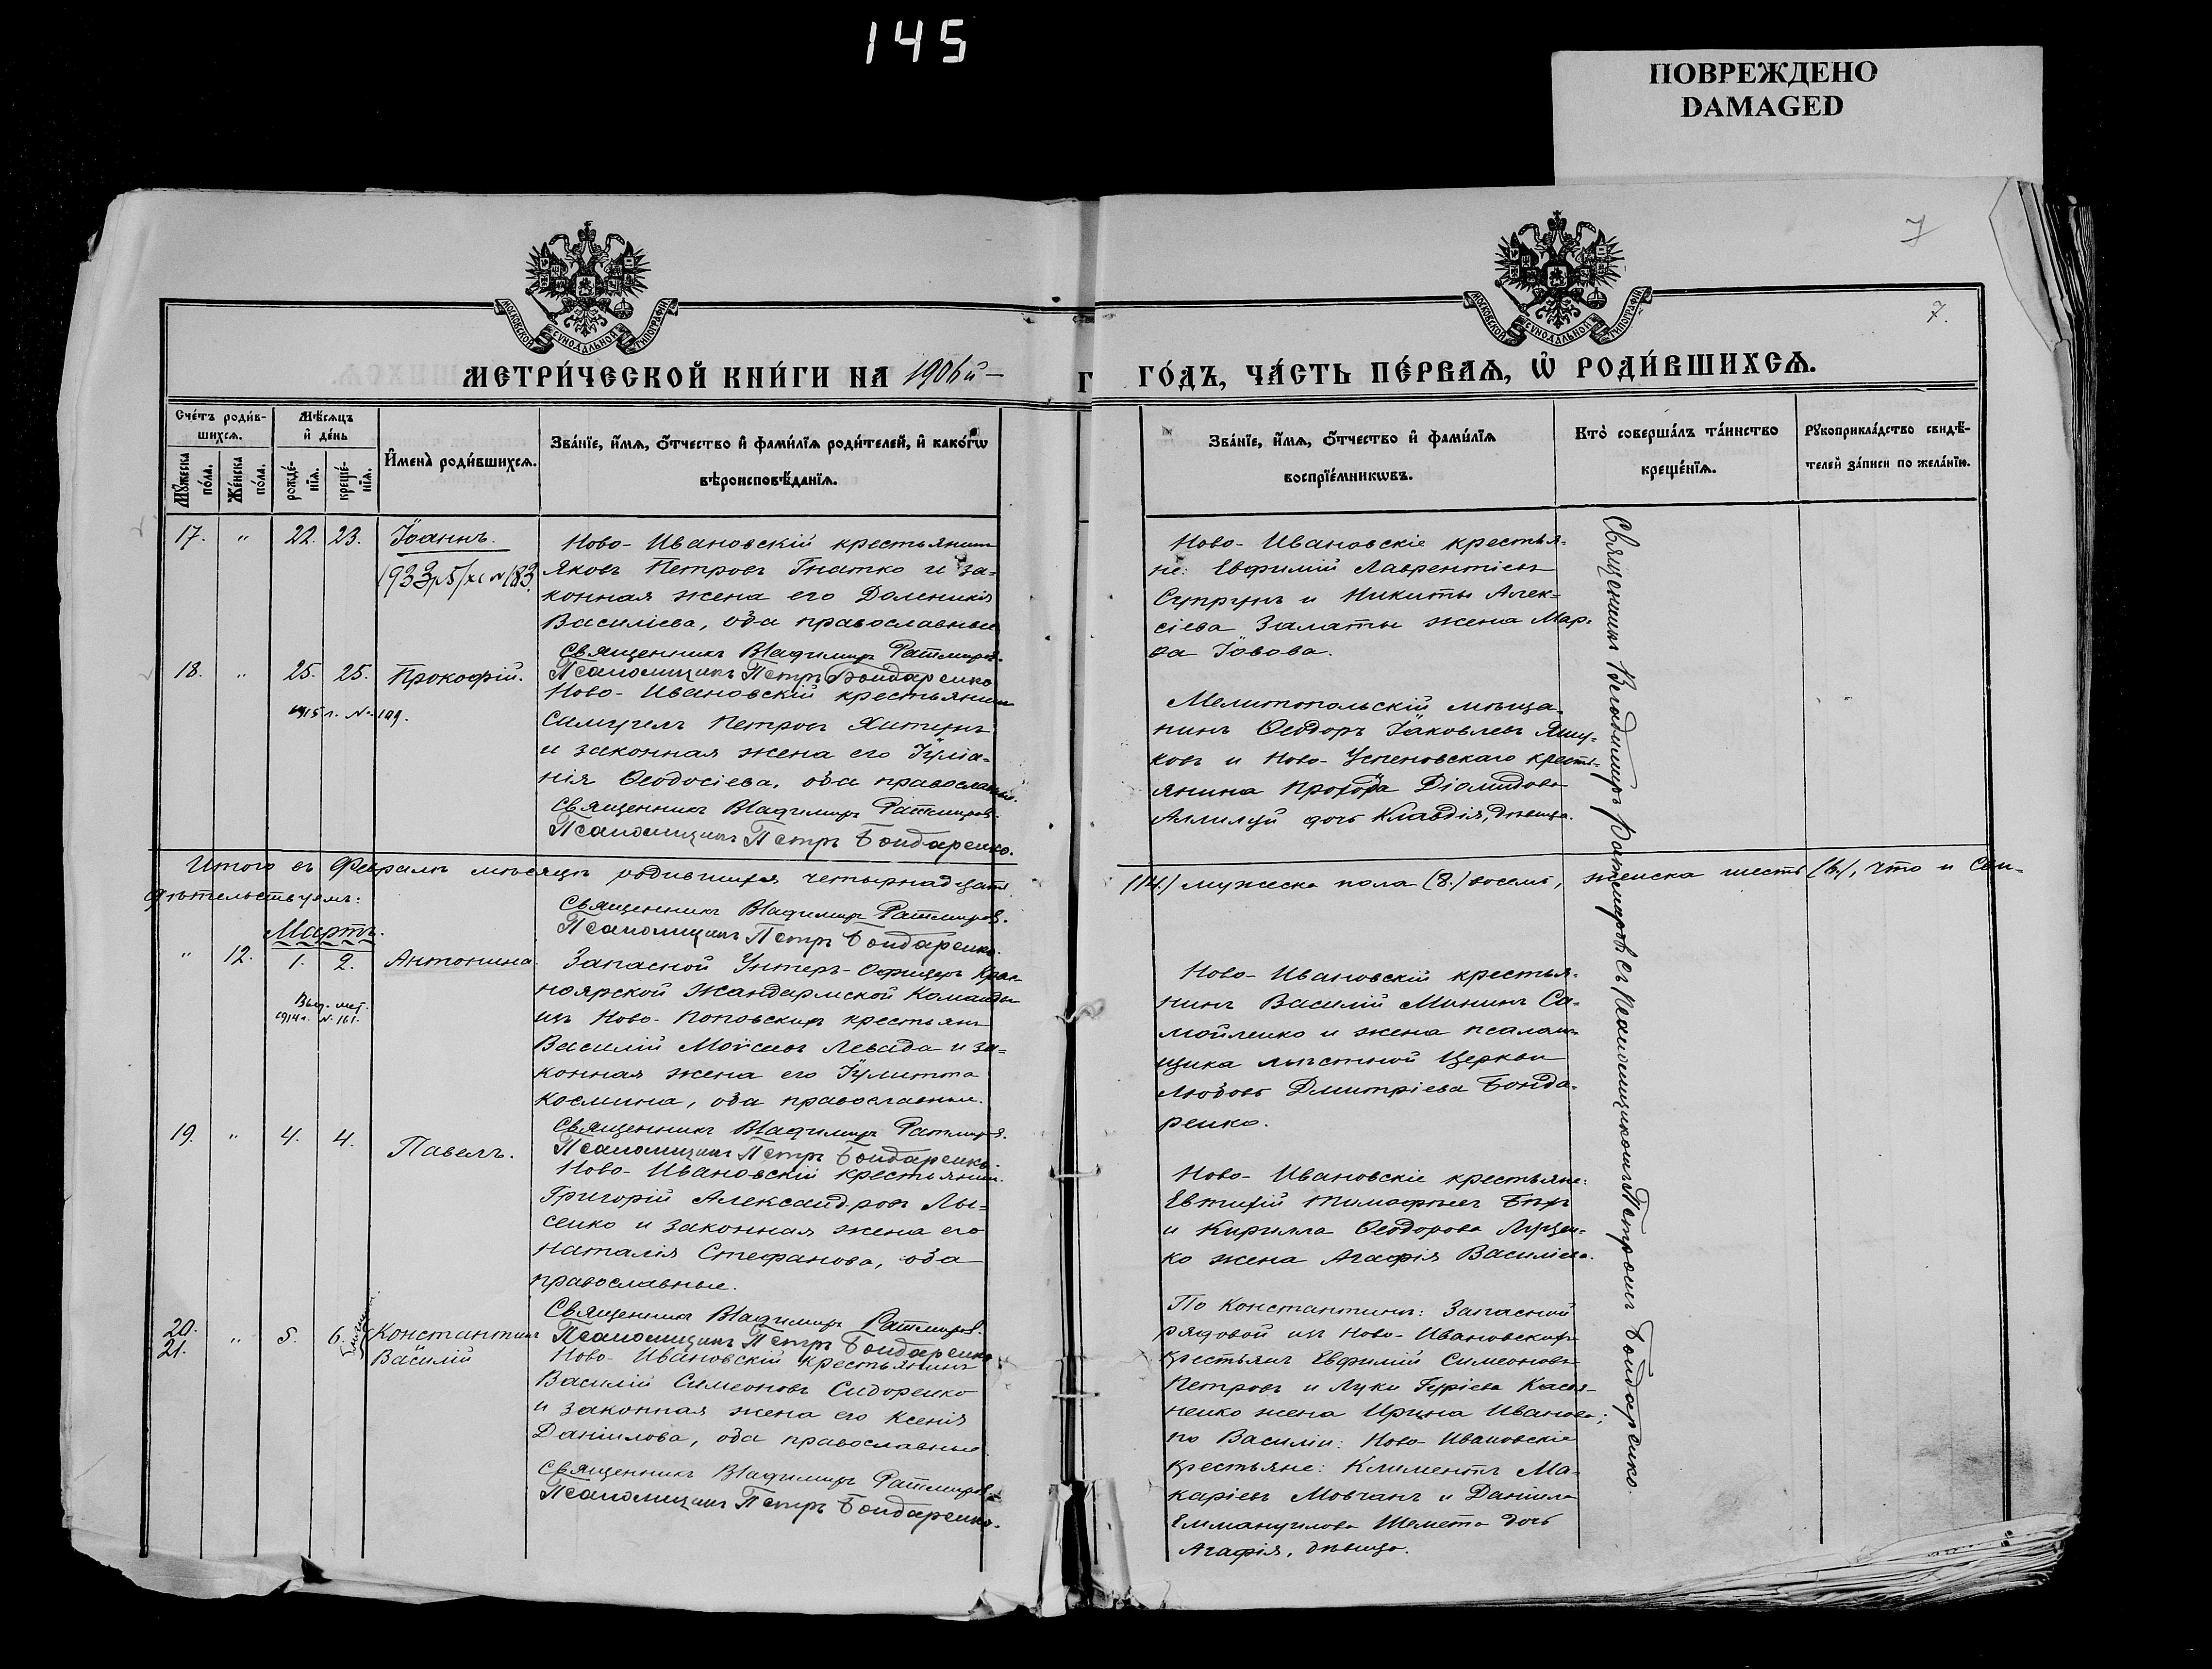 145
ПОВРЕЖДЕНО
DAMAGED
7
7.
МОСКОВСКОЙ СѴНОДАЛЬНОЙ ТИПОГРАФІИ
МОСКОВСКОЙ СѴНОДАЛЬНОЙ ТИПОГРАФІИ
МЕТРИ́ЧЕСКОЙ КНИ́ГИ НА 1906й
Г
ГО́ДЪ, ЧА́СТЬ ПЕ́РВАѦ, Ѡ҆ РОДИ́ВШИХСѦ.
Сче́тъ роди́в-
шихсѧ.
Мѣ́сѧцъ
и҆ де́нь
Мꙋ́жеска
по́ла.
Же́нска
по́ла.
рожде́-
нїѧ.
креще́-
нїѧ.
И҆мена̀ роди́вшихсѧ.
Зва́нїе, и҆́мѧ, ѻ҆́тчество и҆ фами́лїѧ роди́телей, и҆ како́гѡ
вѣроисповѣ́данїѧ.
Зва́нїе, и҆́мѧ, ѻ҆́тчество и҆ фами́лїѧ
воспрїе́мникѡвъ.
Кто̀ соверша́лъ та́инство
креще́нїѧ.
Рꙋкоприкла́дство свидѣ́-
телей за́писи по жела́нїю.
17. " 22. 23. Іоаннъ.
Ново-Ивановскій крестьянинъ
Яковъ Петровъ Гнатко и за-
конная жена его Доменикія
Василіева, оба православные
Священникъ Владимиръ Ратмировъ.
Псаломщикъ Петръ Бондаренко
Ново-Ивановскіе крестья-
не: Евфимій Лаврентіевъ
Супрунъ и Никиты Алек-
сіева Залаты жена Мар-
ѳа Іовова.
18. " 25. 25. Прокофій.
1915 г. №109.
Ново-Ивановскій крестьянинъ
Самуилъ Петровъ Хитунъ
и законная жена его Іуліа-
нія Ѳеодосіева, оба православные.
Священникъ Владимиръ Ратмировъ.
Псаломщикъ Петръ Бондаренко.
Мелитопольскій мѣща-
нинъ Ѳеодоръ Іаковлевъ
ковъ и Ново-Успеновскаго кресть-
янина Діомидова
Аллилуй дочь Клавдія, дѣвица.
Итого въ Февралѣ мѣсяцѣ родившихся четырнадцать (14.) мужеска пола (8.) восемь, женска шесть (6.), что и сви-
дѣтельствуемъ:
Священникъ Владимиръ Ратмировъ.
Псаломщикъ Петръ Бондаренко.
Мартъ.
" 12. 1. 2. Антонина.
Выд. мет.
1914 г. №161.
Запасной Унтеръ-Офицеръ Крас-
ноярской Жандармской Команды
изъ Ново-Поповскихъ крестьянъ
Василій Моѵсеевъ Левада и за-
конная жена его Іулитта
Космина, оба православные.
Священникъ Владимиръ Ратмировъ.
Псаломщикъ Петръ Бондаренко.
Ново-Ивановскій крестья-
нинъ Василій Мининъ Са-
мойленко и жена псалом-
щика мѣстной Церкви
Любовь Дмитріева Бонда-
ренко.
19. " 4. 4. Павелъ.
Ново-Ивановскій крестьянинъ
Григорій Александровъ Лы-
сенко и законная жена его
Наталія Стефанова, оба
православные.
Священникъ Владимиръ Ратмировъ.
Псаломщикъ Петръ Бондаренко.
Ново-Ивановскіе крестьяне:
Евтихій Тимофеевъ
и Кирилла Ѳеодорова Луцен-
ко жена Агафія Василіева.
20.
21. " 5. 6. Константинъ
Василій
Ново-Ивановскій крестьянинъ
Василій Симеоновъ Сидоренко
и законная жена его Ксенія
Даніилова, оба православные.
Священникъ Владимиръ Ратмировъ.
Псаломщикъ Петръ Бондаренко.
По Константинѣ: Запасной
рядовой изъ Ново-Ивановскихъ
крестьянъ Евфимій Симеоновъ
Петровъ и Луки Гуріева Касья-
ненко жена Ирина Иванова;
по Василіи: Ново-Ивановскіе
крестьяне: Климентъ Ма-
каріевъ Мовчанъ и Даніила
Еммануилова Шемета дочь
Агафія, дѣвица.
Священникъ Владимиръ Ратмировъ съ псаломщикомъ Петромъ Бондаренко.